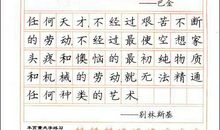 ——巴金
任何天才不经过艰苦不断
的劳动,不经过最使空想家
头疼和懊恼的最初纯物质
和机械的劳动就无法精通
任何种类的艺术。
——别林斯基